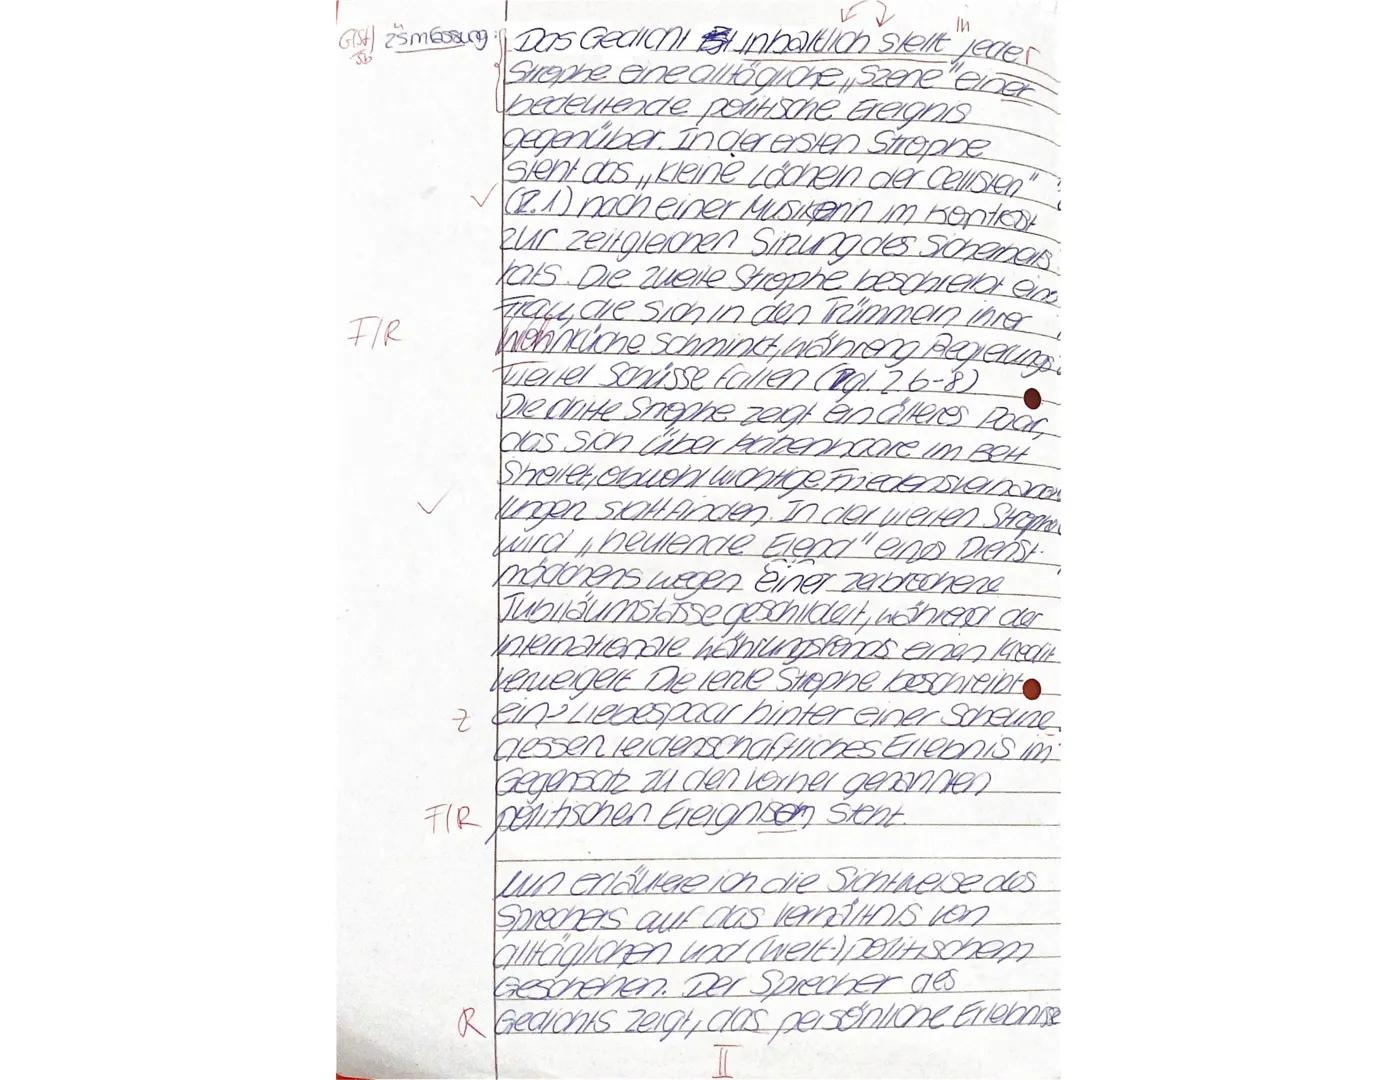 in
G(St) zsmfassung: Das Gedicht inhaltlich stellt jeder
Sb Strophe eine alltägliche „Szene" einer
bedeutende politische Ereignis
gegenüber. In der ersten Strophe
steht das „kleine Lächeln der Cellisten"
(Z.1) nach einer im Kontrast
zur zeitgleichen Sitzung des Sicherheits
rats. Die zweite Strophe beschreibt eine
Frau, die sich in den Trümmern ihrer
F/R Wohnküche schminkt, währeng Regierungs
viertel Schüsse fallen (Vgl. Z.6-8)
Die dritte Strophe zeigt ein älteres Paar,
das sich über Katzenhaare im Bett
streitet, obwohl wichtige Friedensverhand
lungen stattfinden. In der vierten Strophe
wird „heulende Elend" eines Dienst-
mädchens wegen einer zerbrochene
Jubiläumstasse geschildert, während der
Internationale Währungsfonds einen Kredit
verweigert. Die letzte Strophe beschreibt
Z ein Liebespaar hinter einer Scheune
dessen leidenschaftliches Erlebnis im
Gegensatz zu den vorher genannten
F/R politischen Ereignissen steht.
Nun erläutere ich die Sichtweise des
Sprechers auf das Verhältnis von
alltäglichen und (welt-) politischem
Geschehen. Der Sprecher des
R Gedichts zeigt, das persönliche Erlebnisse
II